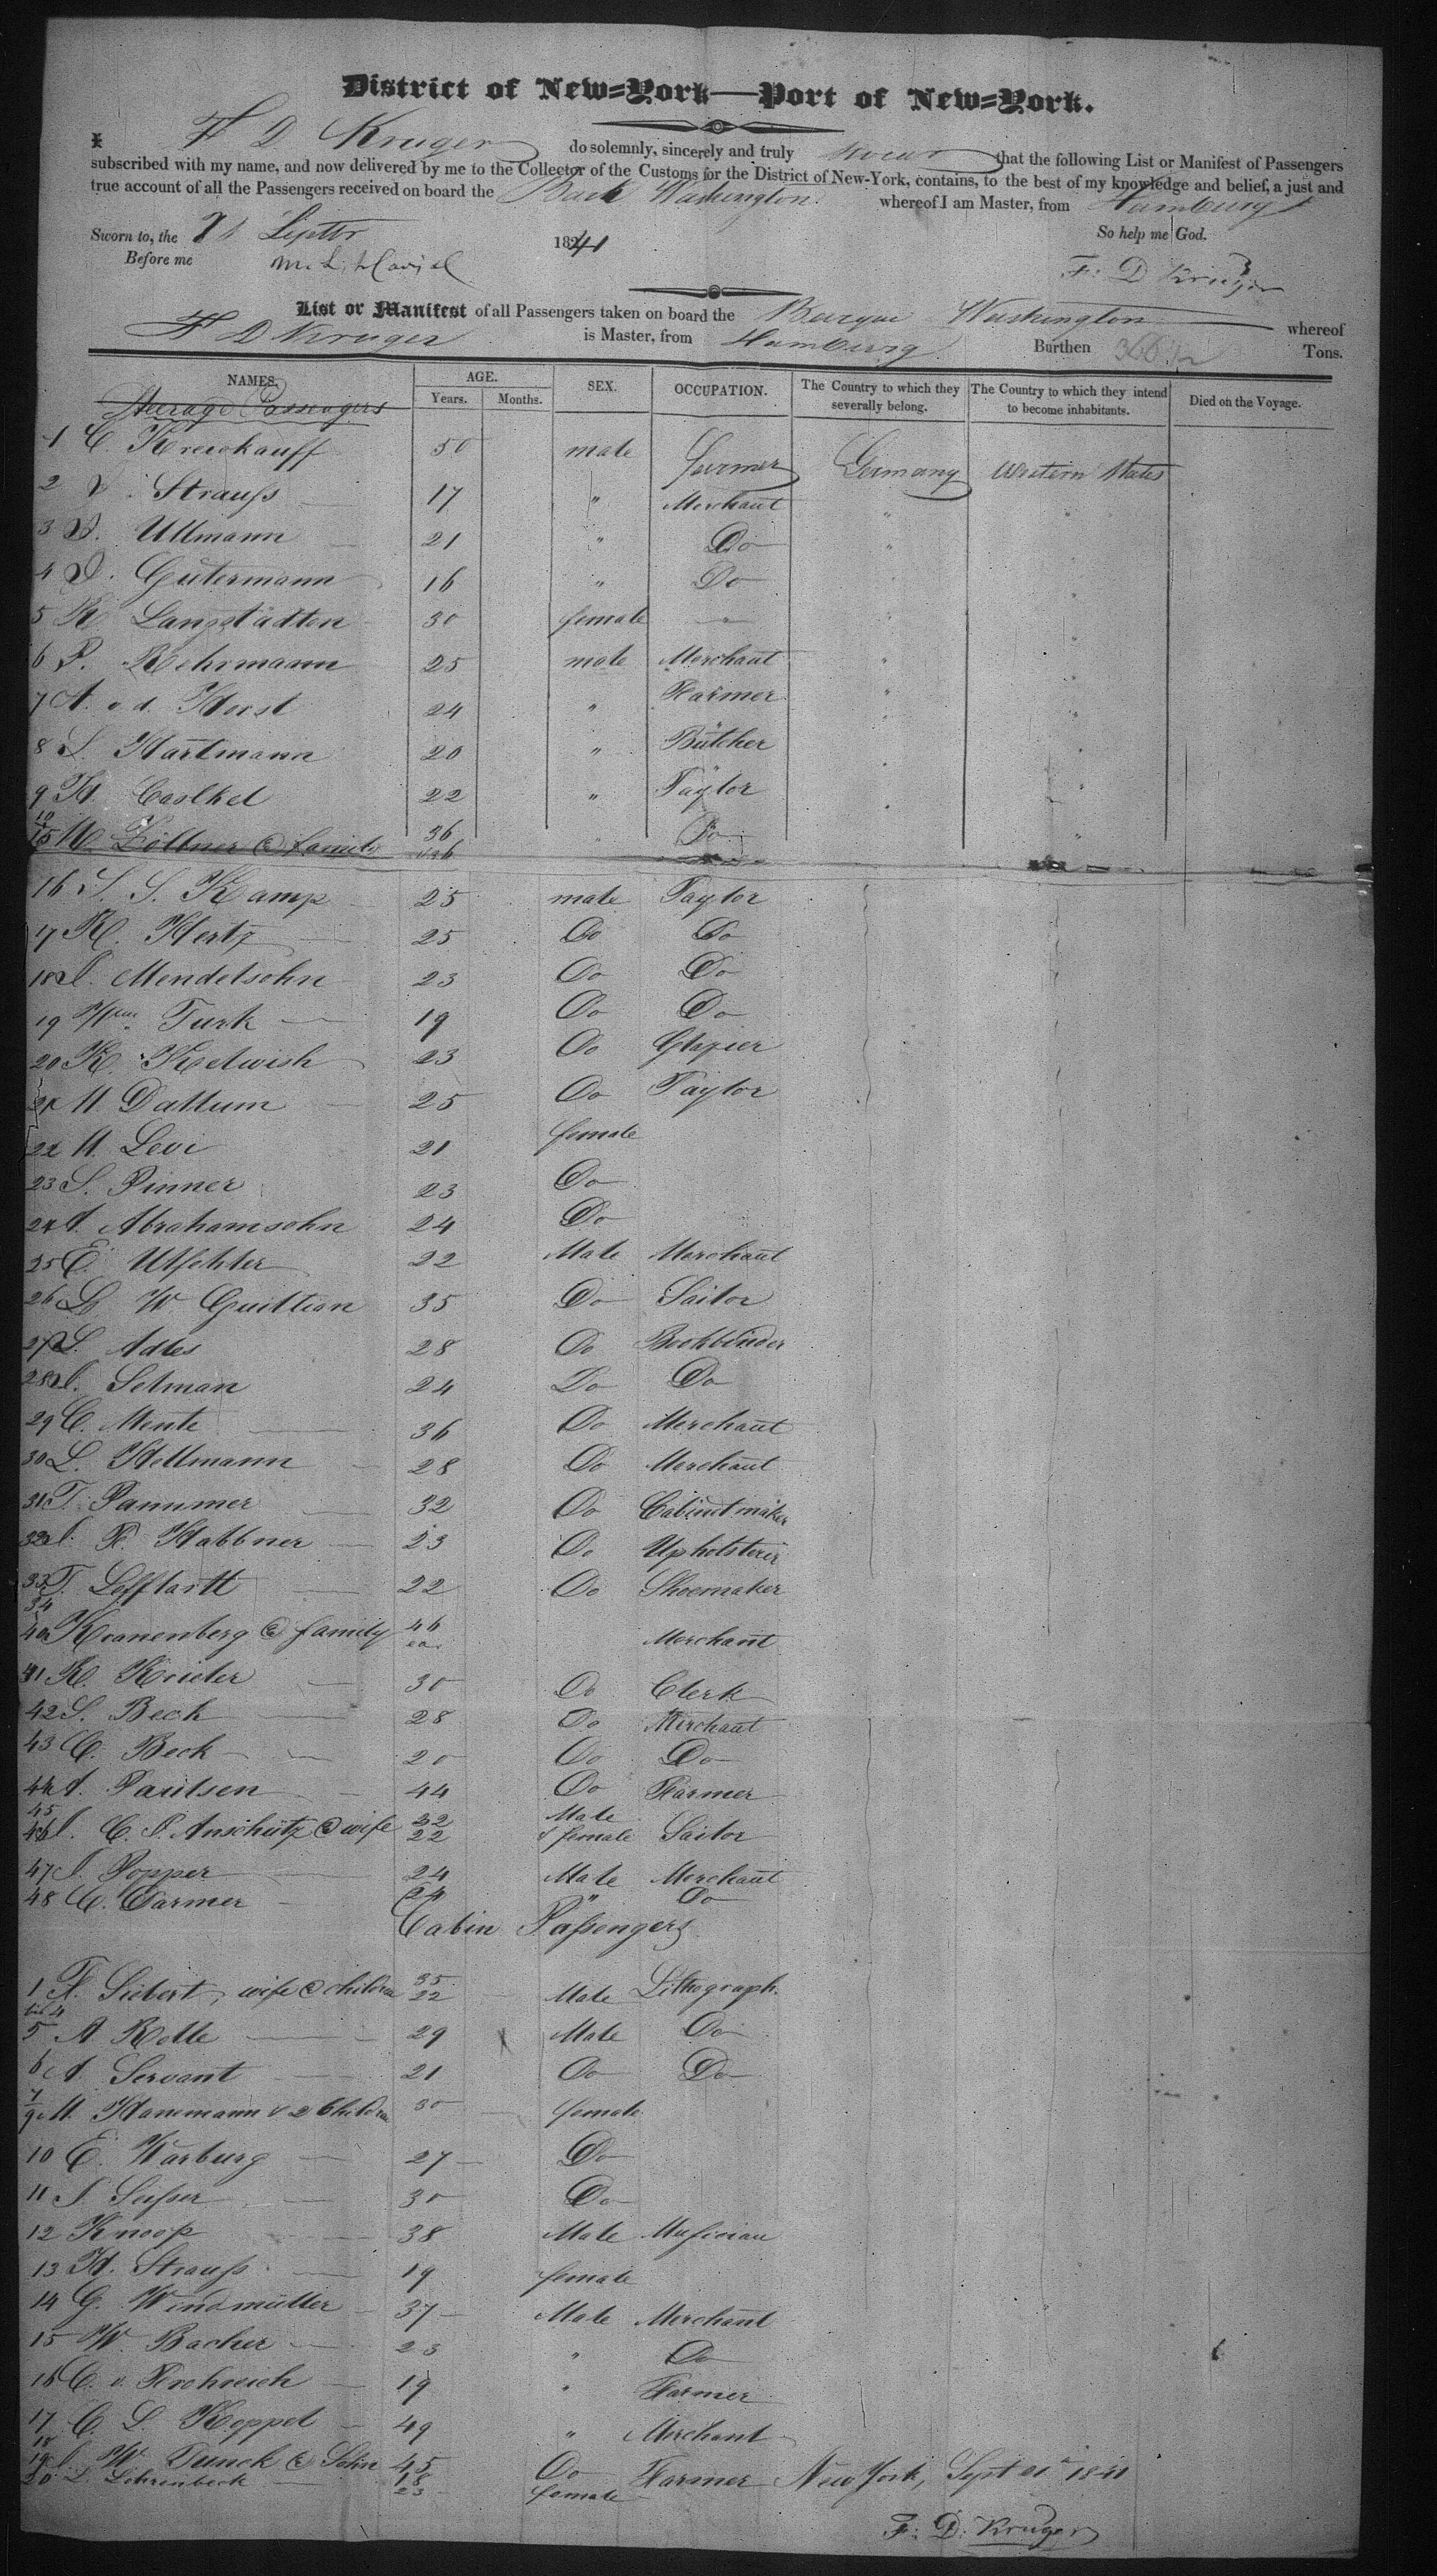 District of New-York—Port of New-York.
I F D Kruger do solemnly, sincerely and truly swear that the following List or Manifest of Passengers
subscribed with my name, and now delivered by me to the Collector of the Customs for the District of New-York, contains, to the best of my knowledge and belief, a just and
true account of all the Passengers received on board the Bark Washington whereof I am Master, from Hamburg
Sworn to, the Septbr 1841 So help me God.
Before me F: D Kruger
List or Manifest of all Passengers taken on board the Barque Washington whereof
F D Kruger is Master, from Hamburg Burthen 366 Tons.
NAMES. AGE. SEX. OCCUPATION. The Country to which they severally belong. The Country to which they intend to become inhabitants. Died on the Voyage.
Years. Months.
Steerage Passengers
1 C. Kreuskauff 50 male Farmer Germany Western States
2 Strauss 17 " Merchant " "
3 Ullmann 21 " Do " "
4 Gütermann 16 " Do "
5 K Langstädten 30 female — "
6 P. Rehrmann 25 male Merchant " "
7 A. v. d. Horst 24 " Farmer " "
8 S. Hartmann 20 " Butcher "
9 H. Caslkel 22 " Taylor "
10 15 M Zöllner & family 36 Do "
16 S. S. Kamp 25 male Taylor
17 R. Hertz 25 Do Do
18 I. Mendelsohn 23 Do Do
19 Turk 19 Do Do
20 K. Kelwish 23 Do Glazier
21 M Dattum 25 Do Taylor
22 M. Levi 21 female
23 S. Pinner 23 Do
24 A. Abrahamsohn 24 Do
25 E. 22 Male Merchant
26 W Guittian 35 Do Sailor
27 S. Adles 28 Do Bookbinder
28 I. Selman 24 Do Do
29 C. Mente 36 Do Merchant
30 L. Hellmann 28 Do Merchant
31 T. Pammer 32 Do Cabinet maker
32 I. R. Habbner 23 Do Upholsterer
33 T. Lefflartt 22 Do Shoemaker
34 40 Kranenberg & family 46 Merchant
41 K. Krieter 30 Do Clerk
42 S. Beck 28 Do Merchant
43 C. Beck 20 Do Do
44 A. Paulsen 44 Do Farmer
45 46 I. C. P. Anschütz & wife 32 22 Male & female Sailor
47 I. Popper 24 Male Merchant
48 C. Carmer 24 " Do
Cabin Passengers
1 F. Siebert, wife & children 35 22 Male Lithograph.
4
5 A Rolle 29 Male Do
6 A. Servant 21 Do Do
7 9 M. Hanemann & 2 Children 30 female
10 E. Warburg 27 Do
11 I. Susser 30 Do
12 Knoop 38 Male Musician
13 H. Strauss 19 female
14 G. Windmüller 37 Male Merchant
15 W. Bacher 23 " Do
16 C. v. 19 " Farmer
17 C. L. Koppel 49 " Merchant
18 19 I. W. Tunck & Sohn 45 18 Do Farmer New York, Sept 21st 1841
20 L. Lohrenbeck 23 female
F: D: Kruger